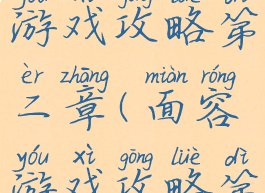 yóu xì gōng lüè dì
游戏攻略第
èr zhāng miàn róng
二章(面容
yóu xì gōng lüè dì
游戏攻略第